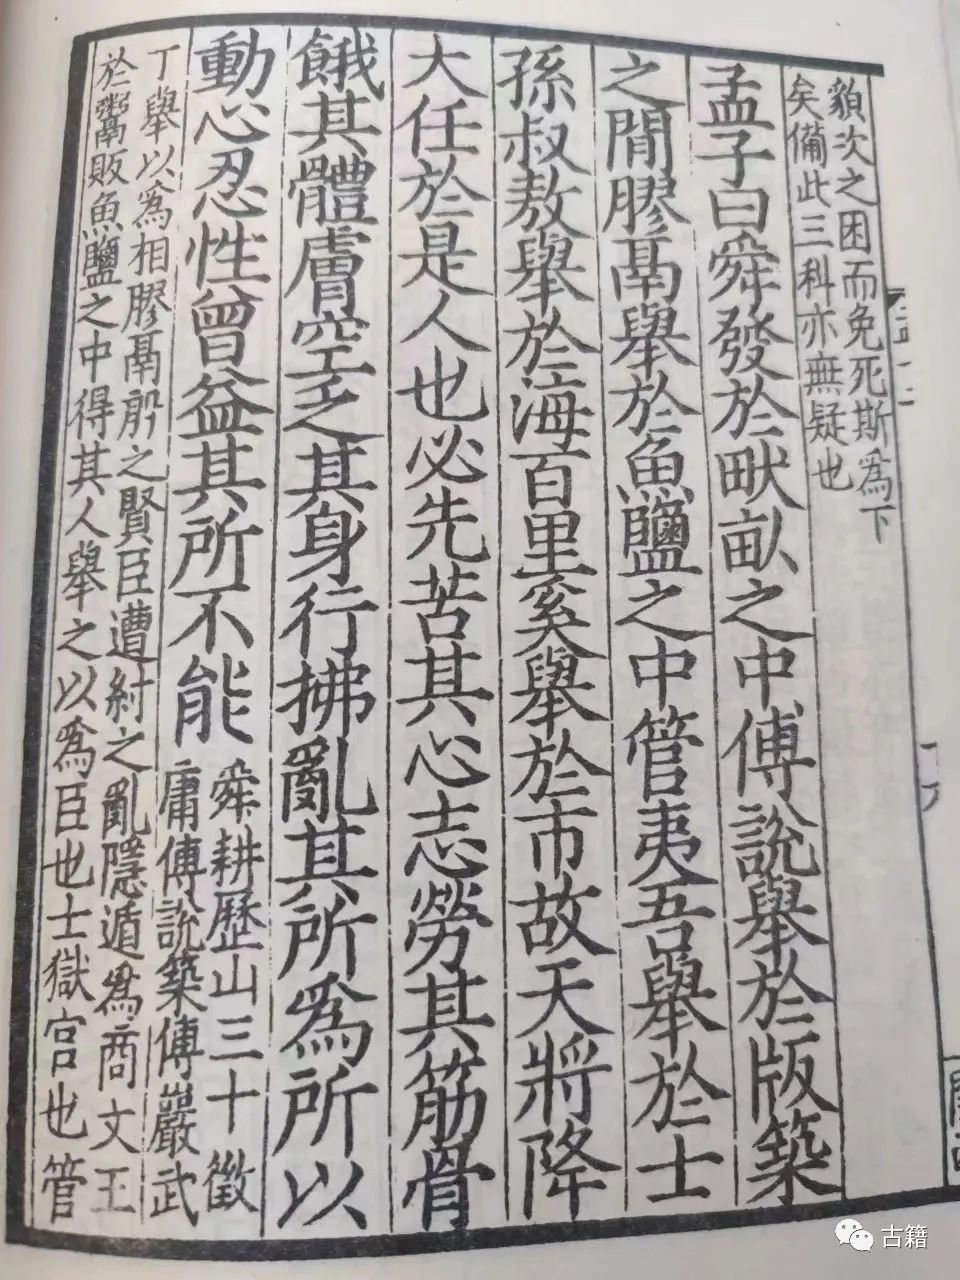 貌次之困而免死斯為下
矣備此三科亦無疑也
孟子曰舜發於畎畝之中傅說舉於版築
之閒膠鬲舉於魚鹽之中管夷吾舉於士
孫叔敖舉於海百里奚舉於市故天將降
大任於是人也必先苦其心志勞其筋骨
餓其體膚空乏其身行拂亂其所為所以
動心忍性曾益其所不能
舜耕歷山三十徵
庸傅說築傅巖武
丁舉以為相膠鬲殷之賢臣遭紂之亂隱遁為商文王
於鬻販魚鹽之中得其人舉之以為臣也士獄官也管
古籍